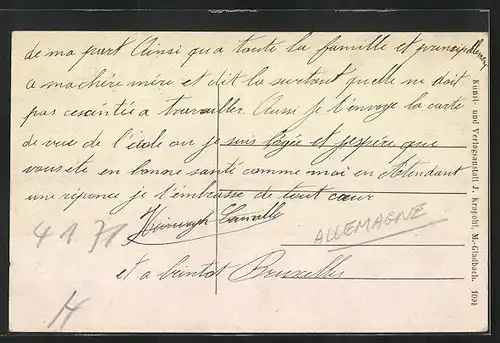 de ma part Ainsi qu'a toute la famille et principallement
a ma chère mère et dit lui surtout quelle ne doit
pas a travailler. Aussi je t'envoye la carte
de vue de l'école ou je suis logée et j'espère que
vous ete en bonne santé comme moi en Attendant
une réponse je t'embrasse de tout cœur
Camille
et a bientot Bruxelles
ALLEMAGNE
4171
H
Kunst- und Verlagsanstalt J. Krapohl, M.-Gladbach. 1094